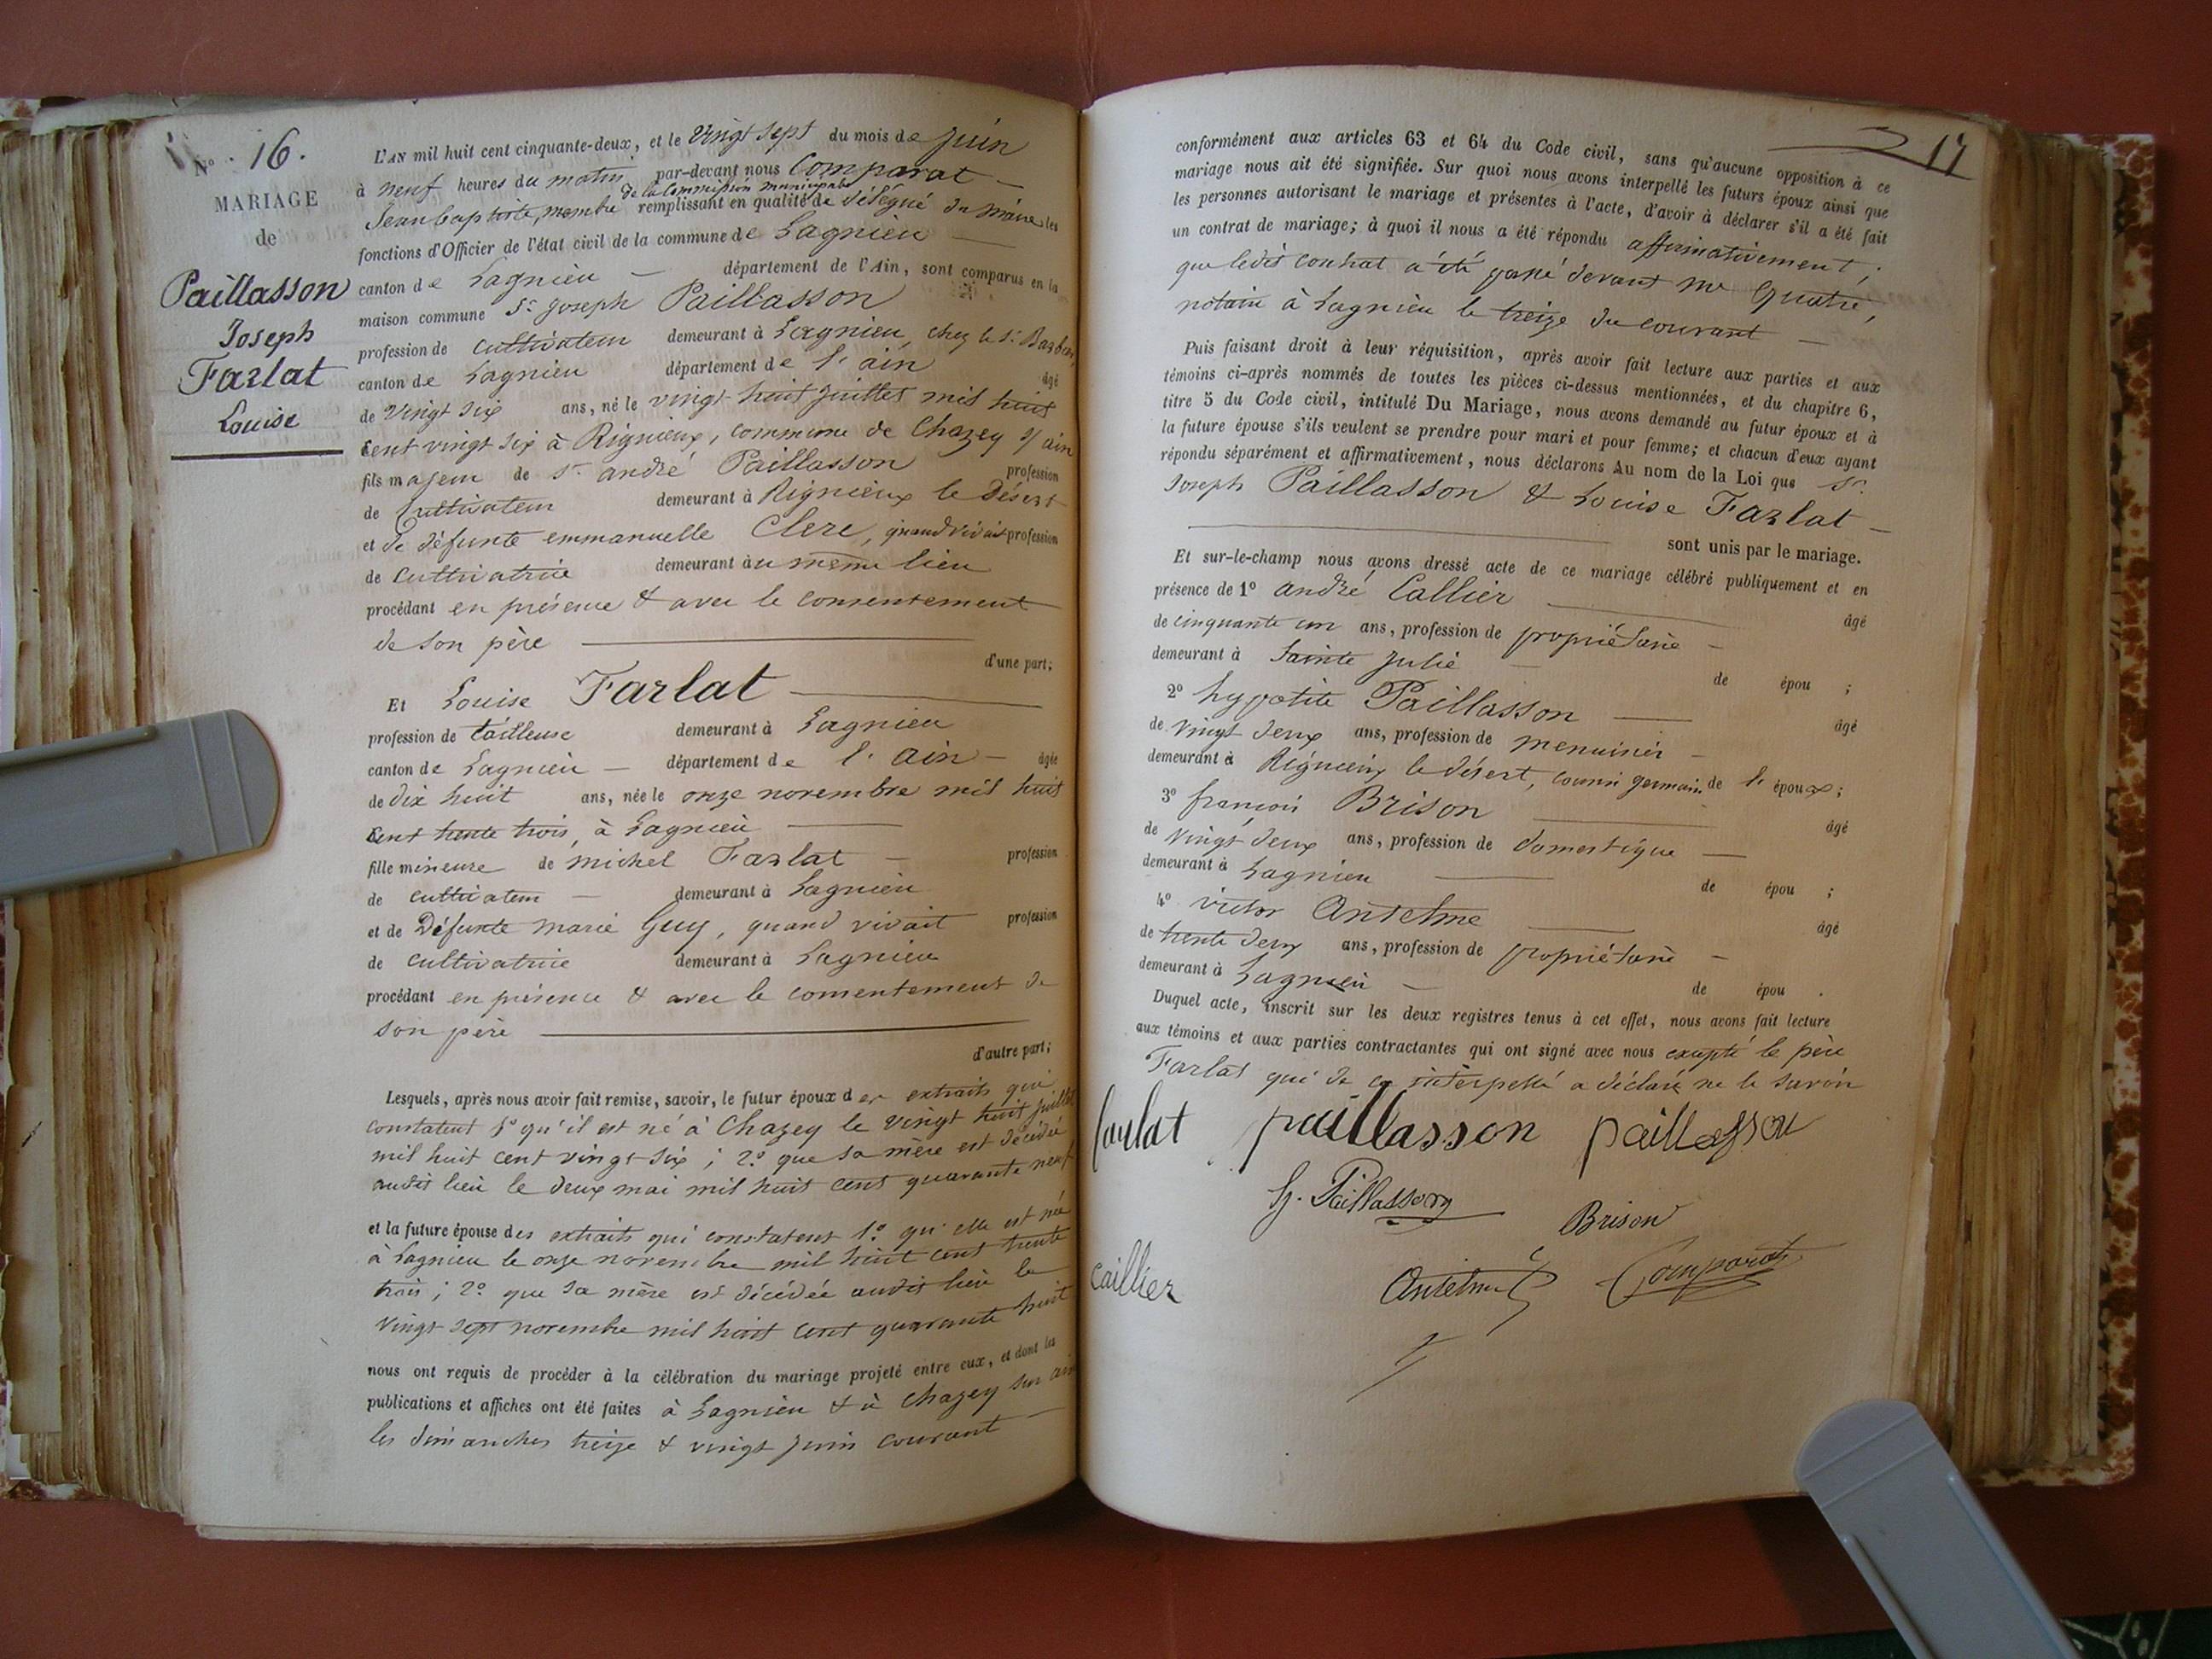 N° 16.
MARIAGE
de
Paillasson
Joseph
Farlat
Louise
L'AN mil huit cent cinquante-deux, et le vingt sept du mois de juin
à neuf heures du matin par-devant nous Comparat
de la Commission municipale
Jean baptiste, membre remplissant en qualité de délégué du maire les
fonctions d'Officier de l'état civil de la commune de Lagnieu
canton de Lagnieu département de l'Ain, sont comparus en la
maison commune Sr. Joseph Paillasson
profession de cultivateur demeurant à Lagnieu, chez le Sr.
canton de Lagnieu département de l'ain âgé
de vingt six ans, né le vingt huit juillet mil huit
cent vingt six à Rignieux, commune de Chazey s/ ain
fils majeur de Sr. andré Paillasson profession
de Cultivateur demeurant à Rignieux le Désert
et de défunte emmanuelle Clerc, quand vivait profession
de cultivatrice demeurant au même lieu
procédant en présence & avec le consentement
de son père
d'une part;
Et Louise Farlat
profession de tailleuse demeurant à Lagnieu
canton de Lagnieu département de l'ain âgée
de dix huit ans, née le onze novembre mil huit
cent trente trois, à Lagnieu
fille mineure de michel Farlat profession
de cultivateur demeurant à Lagnieu
et de Défunte marie Guy, quand vivait profession
de cultivatrice demeurant à Lagnieu
procédant en présence & avec le consentement de
son père
d'autre part;
Lesquels, après nous avoir fait remise, savoir, le futur époux des extraits qui
constatent 1° qu'il est né à Chazey le vingt huit juillet
mil huit cent vingt six; 2° que sa mère est décédée
audit lieu le deux mai mil huit cent quarante neuf
et la future épouse des extraits qui constatent 1° qu'elle est née
à Lagnieu le onze novembre mil huit cent trente
trois; 2° que sa mère est décédée audit lieu le
vingt sept novembre mil huit cent quarante huit
nous ont requis de procéder à la célébration du mariage projeté entre eux, et dont les
publications et affiches ont été faites à Lagnieu & à Chazey sur ain
les dimanches treize & vingt juin courant
17
conformément aux articles 63 et 64 du Code civil, sans qu'aucune opposition à ce
mariage nous ait été signifiée. Sur quoi nous avons interpellé les futurs époux ainsi que
les personnes autorisant le mariage et présentes à l'acte, d'avoir à déclarer s'il a été fait
un contrat de mariage; à quoi il nous a été répondu affirmativement;
que ledit contrat a été passé devant me Quatre,
notaire à Lagnieu le treize du courant
Puis faisant droit à leur réquisition, après avoir fait lecture aux parties et aux
témoins ci-après nommés de toutes les pièces ci-dessus mentionnées, et du chapitre 6,
titre 5 du Code civil, intitulé Du Mariage, nous avons demandé au futur époux et à
la future épouse s'ils veulent se prendre pour mari et pour femme; et chacun d'eux ayant
répondu séparément et affirmativement, nous déclarons Au nom de la Loi que Sr.
Joseph Paillasson & Louise Farlat
sont unis par le mariage.
Et sur-le-champ nous avons dressé acte de ce mariage célébré publiquement et en
présence de 1° andré Callier âgé
de cinquante un ans, profession de propriétaire
demeurant à Sainte Julie de épou ;
2° hypolite Paillasson âgé
de vingt deux ans, profession de menuisier
demeurant à Rignieux le désert, cousin germain de l'époux;
3° françois Brison âgé
de vingt deux ans, profession de domestique
demeurant à Lagnieu de épou ;
4° victor Anselme âgé
de trente deux ans, profession de propriétaire
demeurant à Lagnieu de épou .
Duquel acte, inscrit sur les deux registres tenus à cet effet, nous avons fait lecture
aux témoins et aux parties contractantes qui ont signé avec nous excepté le père
Farlat qui de ce interpellé a déclaré ne le savoir
farlat paillasson paillasson
h. Paillasson
Brison
caillier
Anselme Comparat